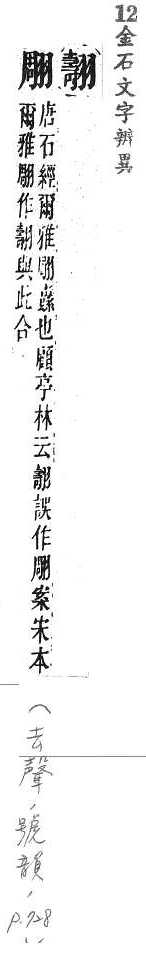 12金石文字辨異
翿
翢
唐石經爾雅翢纛也顧亭林云翿誤作翢案宋本
爾雅翢作翿與此合
(去聲,號韻,p.728)